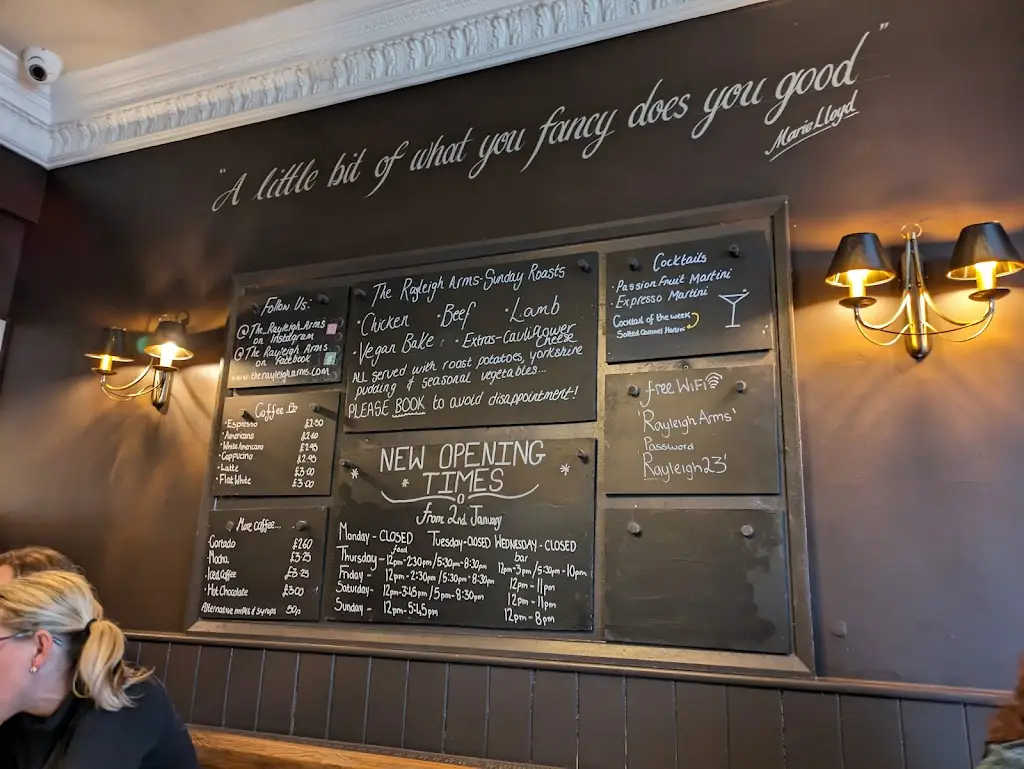 "A little bit of what you fancy does you good"
Marie Lloyd
Follow Us:
@The_Rayleigh_Arms
on Instagram
@The Rayleigh Arms
on Facebook
www.therayleigharms.com
The Rayleigh Arms-Sunday Roasts
·Chicken ·Beef ·Lamb
·Vegan Bake ·Extras-Cauliflower
Cheese
ALL served with roast potatoes, yorkshire
pudding & seasonal vegetables...
PLEASE BOOK to avoid disappointment!
Cocktails
·Passion Fruit Martini
·Expresso Martini
Cocktail of the week
Salted Caramel Martini
Coffee
·Espresso £2.50
·Americano £2.60
·White Americano £2.95
·Cappucino £2.95
·Latte £3.00
·Flat White £3.00
free WiFi
'Rayleigh Arms'
Password
Rayleigh23'
NEW OPENING
TIMES
from 2nd January
Monday - CLOSED Tuesday-CLOSED WEDNESDAY - CLOSED
food bar
Thursday - 12pm-2:30pm/5:30pm-8:30pm 12pm-3pm/5:30pm-10pm
Friday - 12pm-2:30pm/5:30pm-8:30pm 12pm-11pm
Saturday- 12pm-3:45pm/5pm-8:30pm 12pm-11pm
Sunday- 12pm-5:45pm 12pm-8pm
More coffee...
Cortado £2.60
Mocha £3.25
·Iced Coffee £3.25
·Hot Chocolate £3.00
Alternative milks & syrups 50p